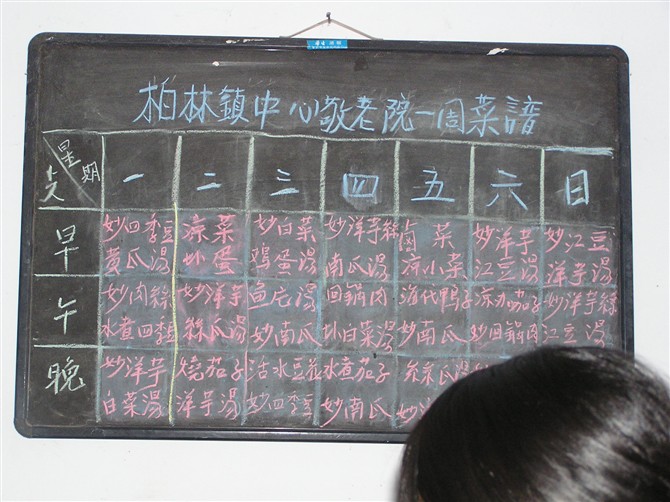 柏林鎮中心敬老院一周菜譜
星期 一 二 三 四 五 六 日
早 炒四季豆 涼菜 炒白菜 炒洋芋絲 卤菜 炒洋芋 炒江豆
黄瓜湯 炒蛋 雞蛋湯 南瓜湯 凉小菜 江豆湯 洋芋湯
午 炒肉絲 炒洋芋 魚皮湯 回鍋肉 海代鸭子 凉加茄子 炒洋芋絲
水煮四季豆 絲瓜湯 炒南瓜 小白菜湯 炒南瓜 炒回鍋肉 江豆湯
晚 炒洋芋 燒茄子 活水豆花 水煮茄子 瓜湯
白菜湯 洋芋湯 炒四季豆 炒南瓜